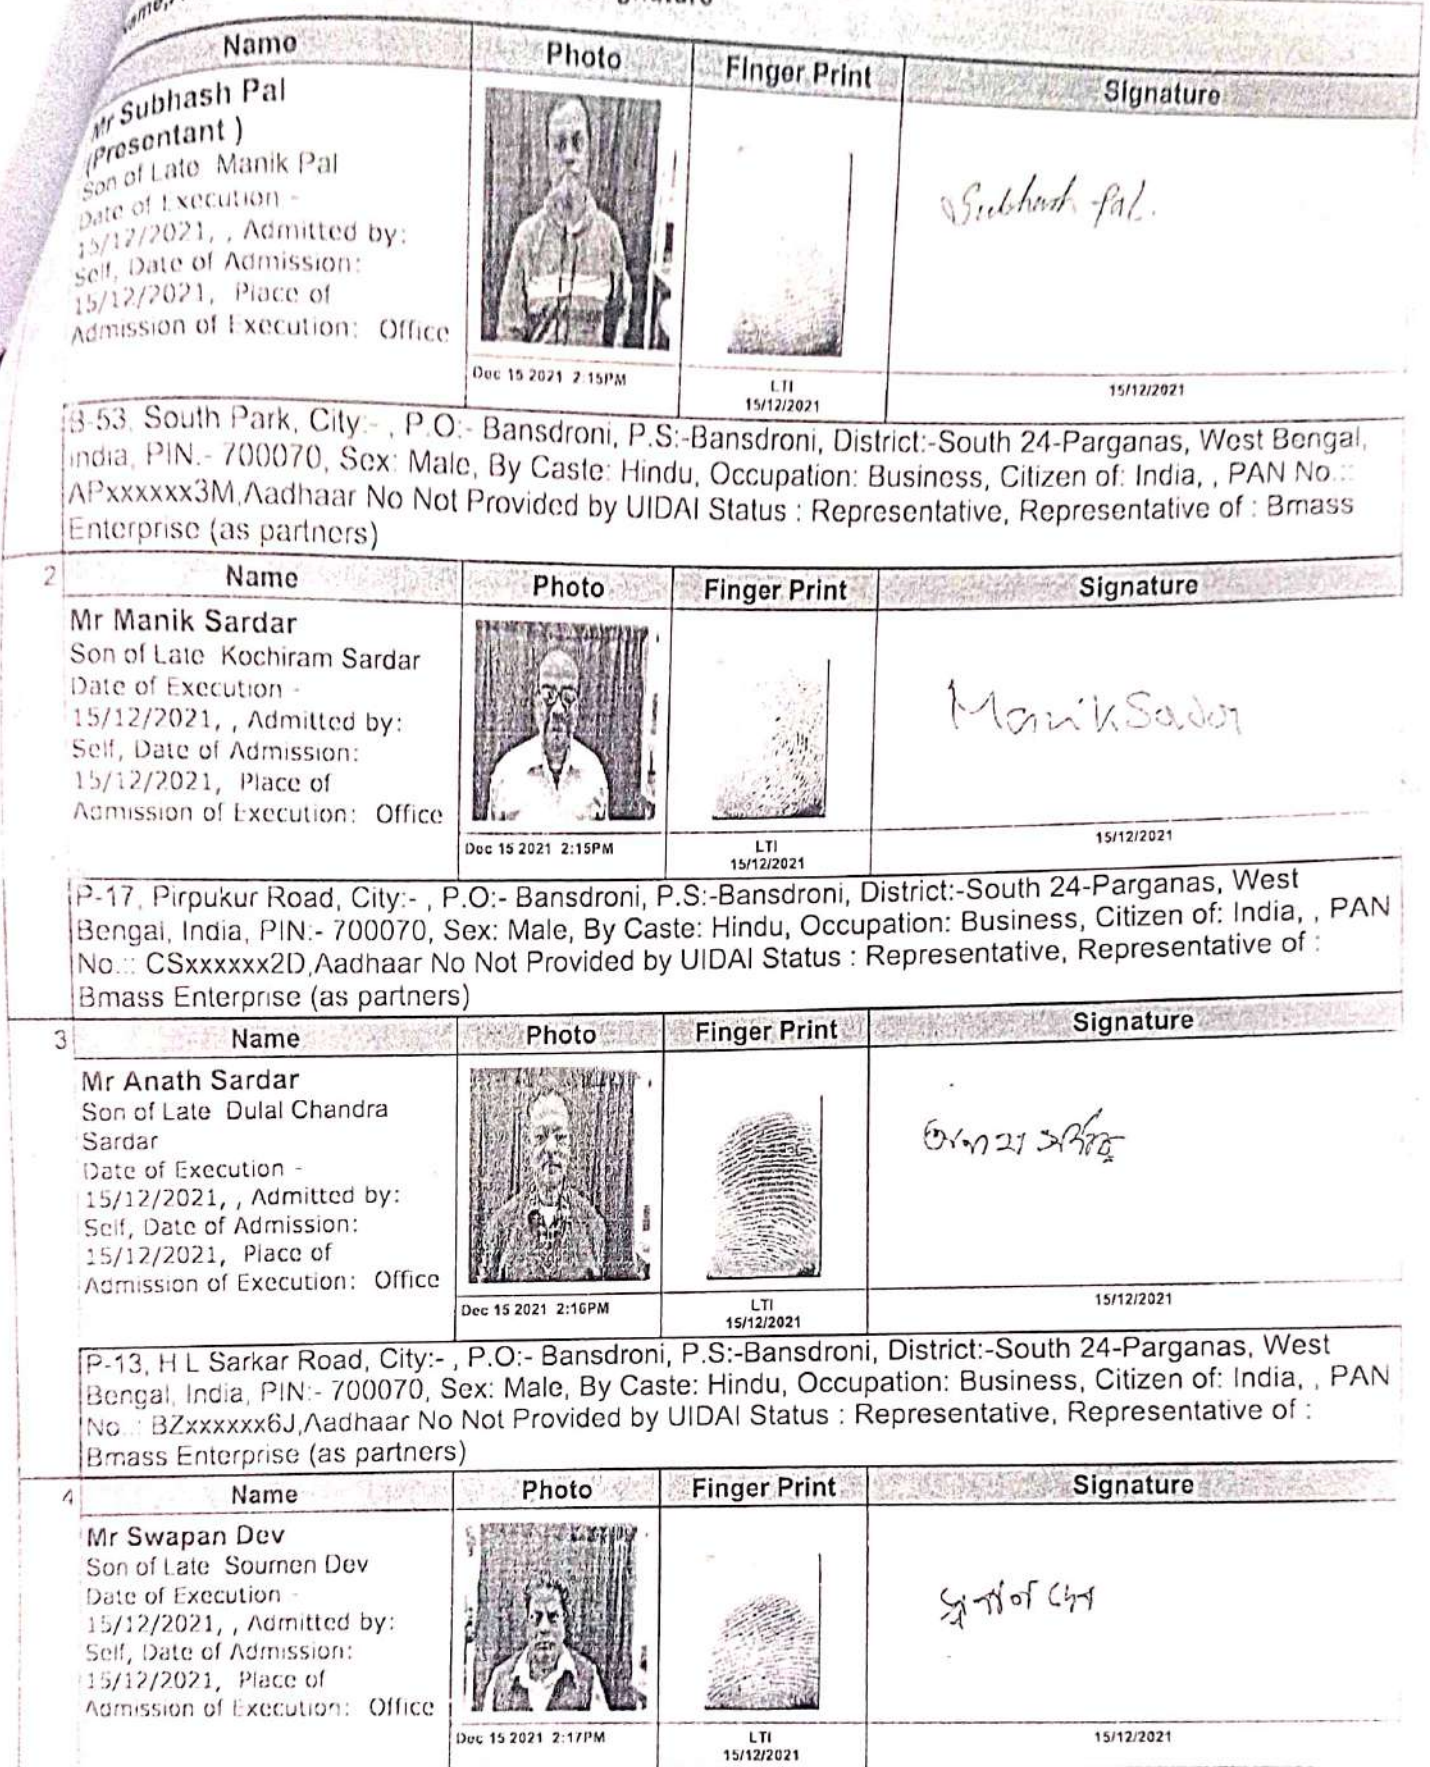 Name
Photo
Finger Print
Signature
Mr Subhash Pal
(Presentant )
Son of Late Manik Pal
Date of Execution -
15/12/2021, , Admitted by:
Self, Date of Admission:
15/12/2021, Place of
Admission of Execution: Office
Subhash Pal.
Dec 15 2021 2:15PM
LTI
15/12/2021
15/12/2021
B-53, South Park, City:- , P.O:- Bansdroni, P.S:-Bansdroni, District:-South 24-Parganas, West Bengal,
India, PIN:- 700070, Sex: Male, By Caste: Hindu, Occupation: Business, Citizen of: India, , PAN No.::
APxxxxxx3M,Aadhaar No Not Provided by UIDAI Status : Representative, Representative of : Bmass
Enterprise (as partners)
2
Name
Photo
Finger Print
Signature
Mr Manik Sardar
Son of Late Kochiram Sardar
Date of Execution -
15/12/2021, , Admitted by:
Self, Date of Admission:
15/12/2021, Place of
Admission of Execution: Office
Manik Sador
Dec 15 2021 2:15PM
LTI
15/12/2021
15/12/2021
P-17, Pirpukur Road, City:- , P.O:- Bansdroni, P.S:-Bansdroni, District:-South 24-Parganas, West
Bengal, India, PIN:- 700070, Sex: Male, By Caste: Hindu, Occupation: Business, Citizen of: India, , PAN
No.:: CSxxxxxx2D,Aadhaar No Not Provided by UIDAI Status : Representative, Representative of :
Bmass Enterprise (as partners)
3
Name
Photo
Finger Print
Signature
Mr Anath Sardar
Son of Late Dulal Chandra
Sardar
Date of Execution -
15/12/2021, , Admitted by:
Self, Date of Admission:
15/12/2021, Place of
Admission of Execution: Office
Dec 15 2021 2:16PM
LTI
15/12/2021
15/12/2021
P-13, H L Sarkar Road, City:- , P.O:- Bansdroni, P.S:-Bansdroni, District:-South 24-Parganas, West
Bengal, India, PIN:- 700070, Sex: Male, By Caste: Hindu, Occupation: Business, Citizen of: India, , PAN
No.:: BZxxxxxx6J,Aadhaar No Not Provided by UIDAI Status : Representative, Representative of :
Bmass Enterprise (as partners)
4
Name
Photo
Finger Print
Signature
Mr Swapan Dev
Son of Late Soumen Dev
Date of Execution -
15/12/2021, , Admitted by:
Self, Date of Admission:
15/12/2021, Place of
Admission of Execution: Office
Dec 15 2021 2:17PM
LTI
15/12/2021
15/12/2021